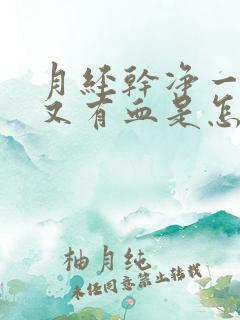 月經幹净一
又有血是怎
柚月纯
未经同意禁止转载